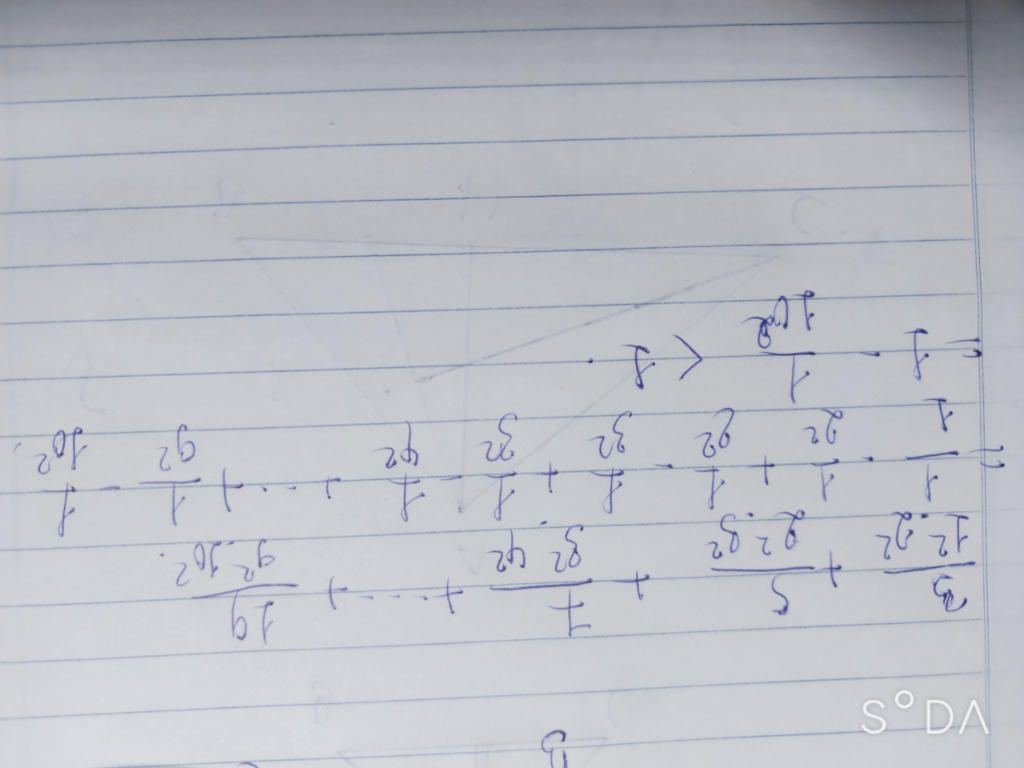 B
3/1².2² + 5/2².3² + 7/3².4² + .... + 19/9².10².
= 1/1 - 1/2² + 1/2² - 1/3² + 1/3² - 1/4² + ... + 1/9² - 1/10².
= 1 - 1/10² < 1.
S°DA